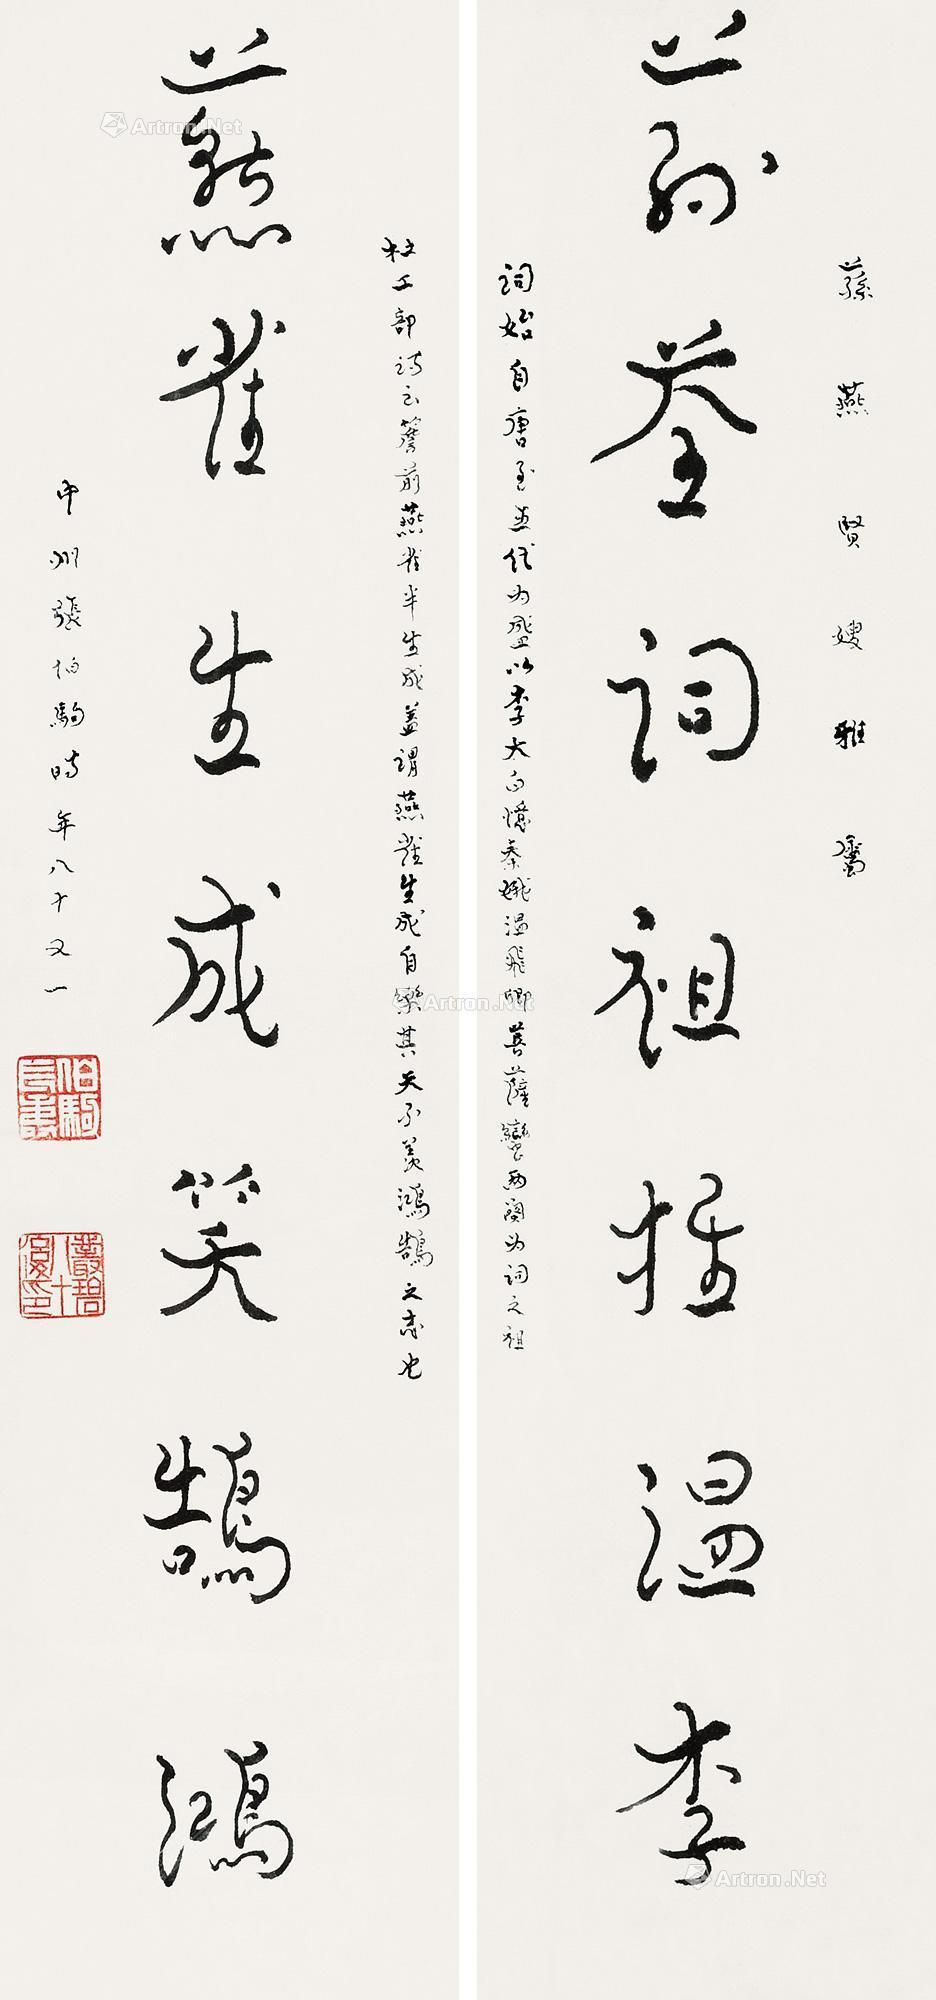 蓀燕賢嫂雅鑒
蓀荃詞祖推溫李
詞始自唐至五代為盛以李太白憶秦娥溫飛卿菩薩蠻兩闋為詞之祖
杜工部詩云簷前燕雀半生成蓋謂燕雀生成自樂其天不羨鴻鵠之志也
燕雀生成笑鵠鴻
中州張伯駒時年八十又一
伯駒長壽
叢碧八十後印
Artron.Net
Artron.Net
Artron.Net